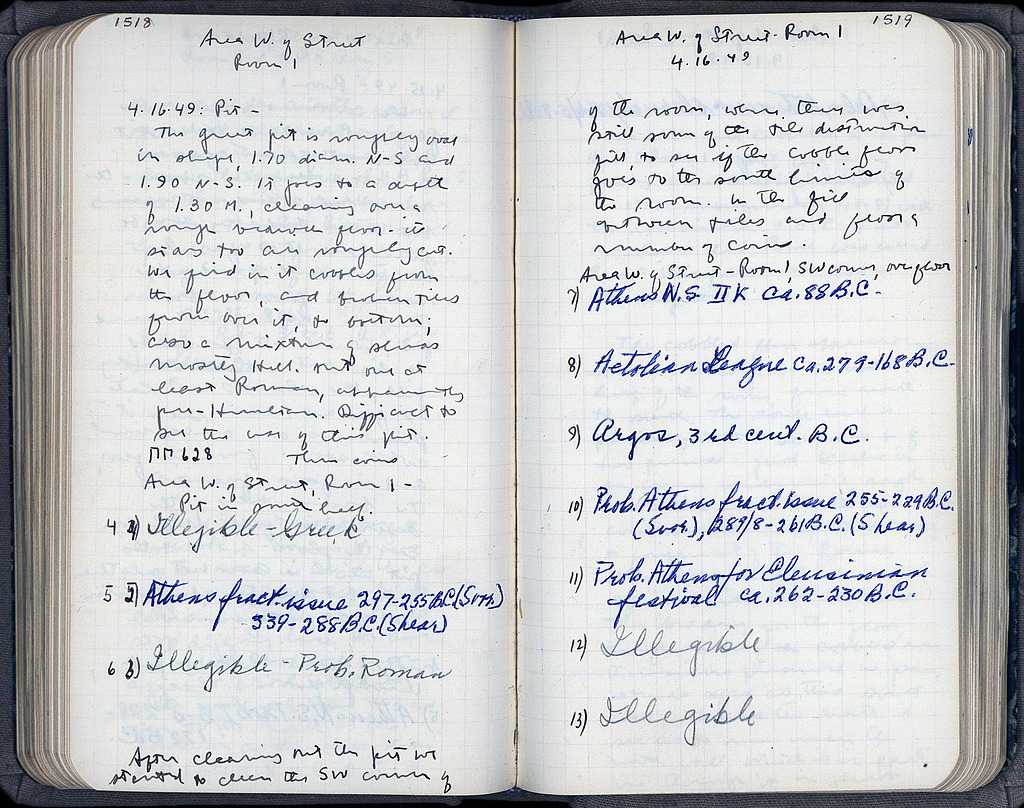 1518
Area W. of Street
Room 1
4.16.49: Pit -
The great pit is roughly oval
in shape, 1.70 diam. N-S and
1.90 N-S. It goes to a depth
of 1.30 M., clearing on a
rough bedrock floor - its
sides too are roughly cut.
We find in it cobbles from
the floor, and broken tiles
from over it, to bottom;
also a mixture of sherds
mostly Hell. but one at
least Roman, apparently
pre-Herulian. Difficult to
see the use of this pit.
ΠΠ 628 Three coins
Area W. of Street, Room 1 -
Pit in south half.
4 Illegible - Greek
5 Athens fract. issue 297-255 B.C. (Svor.)
339-288 B.C. (Shear)
6 Illegible - Prob. Roman
After clearing out the pit we
started to clean the SW corner of
1519
Area W. of Street - Room 1
4.16.49
of the room, where there was
still some of the tile destruction
fill, to see if the cobble floor
goes to the south limits of
the room. In the fill
between tiles and floor a
number of coins.
Area W. of Street - Room 1, SW corner, over floor
7) Athens N.S. II K ca. 88 B.C.
8) Aetolian League ca. 279-168 B.C.
9) Argos, 3rd cent. B.C.
10) Prob. Athens fract. issue 255-229 B.C.
(Svor.), 289/8-261 B.C. (Shear)
11) Prob. Athens for Eleusinian
festival ca. 262-230 B.C.
12) Illegible
13) Illegible